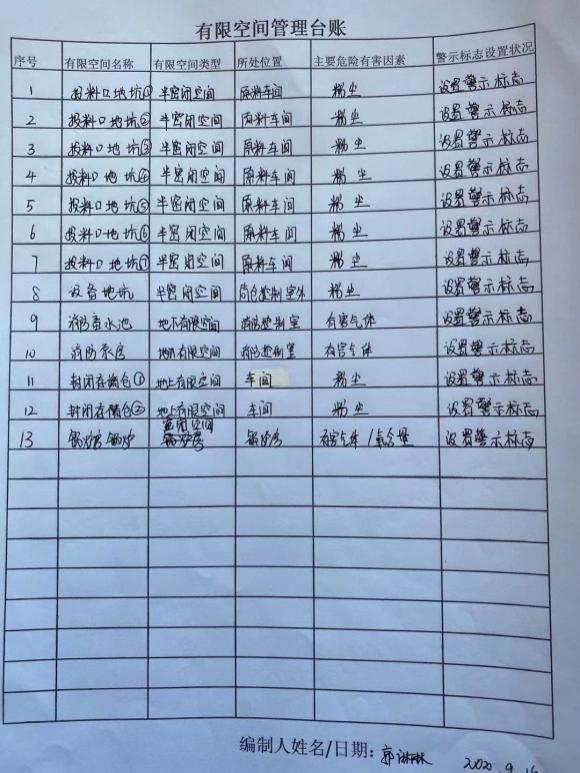 有限空间管理台账
序号 有限空间名称 有限空间类型 所处位置 主要危险有害因素 警示标志设置状况
1 投料口地坑① 半密闭空间 原料车间 粉尘 设置警示标志
2 投料口地坑② 半密闭空间 原料车间 粉尘 设置警示标志
3 投料口地坑③ 半密闭空间 原料车间 粉尘 设置警示标志
4 投料口地坑④ 半密闭空间 原料车间 粉尘 设置警示标志
5 投料口地坑⑤ 半密闭空间 原料车间 粉尘 设置警示标志
6 投料口地坑⑥ 半密闭空间 原料车间 粉尘 设置警示标志
7 投料口地坑⑦ 半密闭空间 原料车间 粉尘 设置警示标志
8 设备地坑 半密闭空间 筒仓控制室外 粉尘 设置警示标志
9 消防蓄水池 地下有限空间 消防控制室 有害气体 设置警示标志
10 消防泵房 地下有限空间 消防控制室 有害气体 设置警示标志
11 封闭存储仓① 地上有限空间 车间 粉尘 设置警示标志
12 封闭存储仓② 地上有限空间 车间 粉尘 设置警示标志
13 锅炉房锅炉 密闭空间 锅炉房 有害气体/氧含量 设置警示标志
编制人姓名/日期：郭 2020.9.16